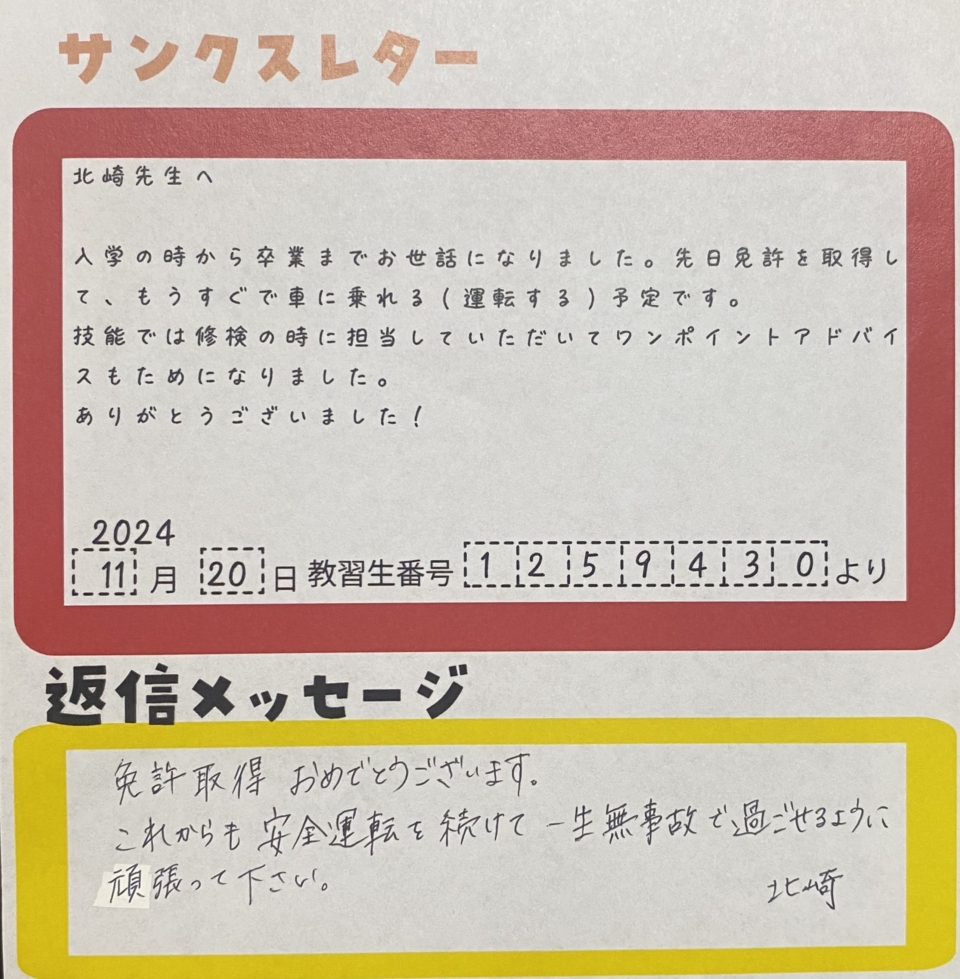 サンクスレター
北崎先生へ
入学の時から卒業までお世話になりました。先日免許を取得し
て、もうすぐで車に乗れる(運転する)予定です。
技能では修検の時に担当していただいてワンポイントアドバイ
スもためになりました。
ありがとうございました!
2024
11月 20日 教習生番号 1259430より
返信メッセージ
免許取得 おめでとうございます。
これからも 安全運転を 続けて 一生無事故で過ごせるように
頑張って下さい。
北崎